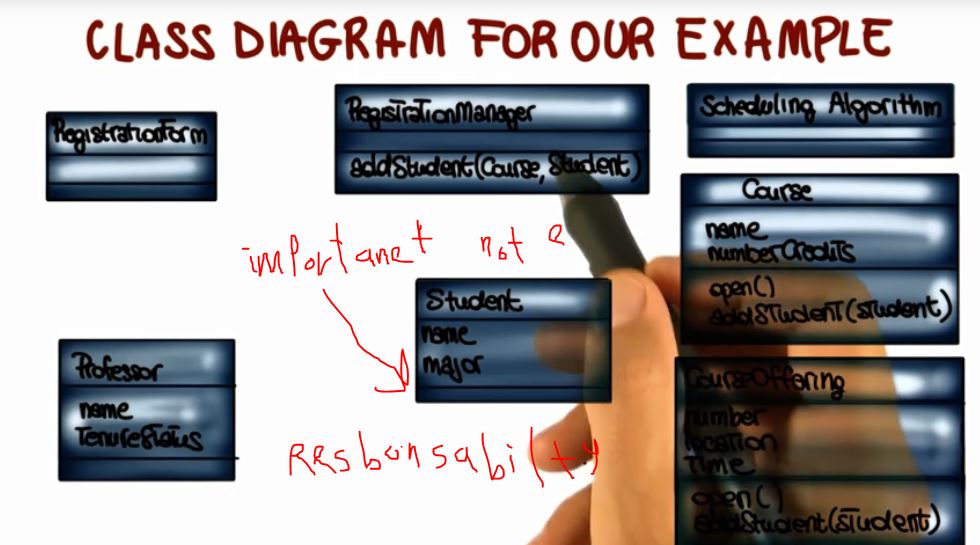 CLASS DIAGRAM FOR OUR EXAMPLE
RegistrationForm
RegistrationManager
addStudent(Course, Student)
Scheduling Algorithm
Course
name
numberCredits
open()
addStudent(student)
importanet not e
Student
name
major
Professor
name
TenureStatus
CourseOffering
number
location
Time
open()
addStudent(student)
RRsbonsability